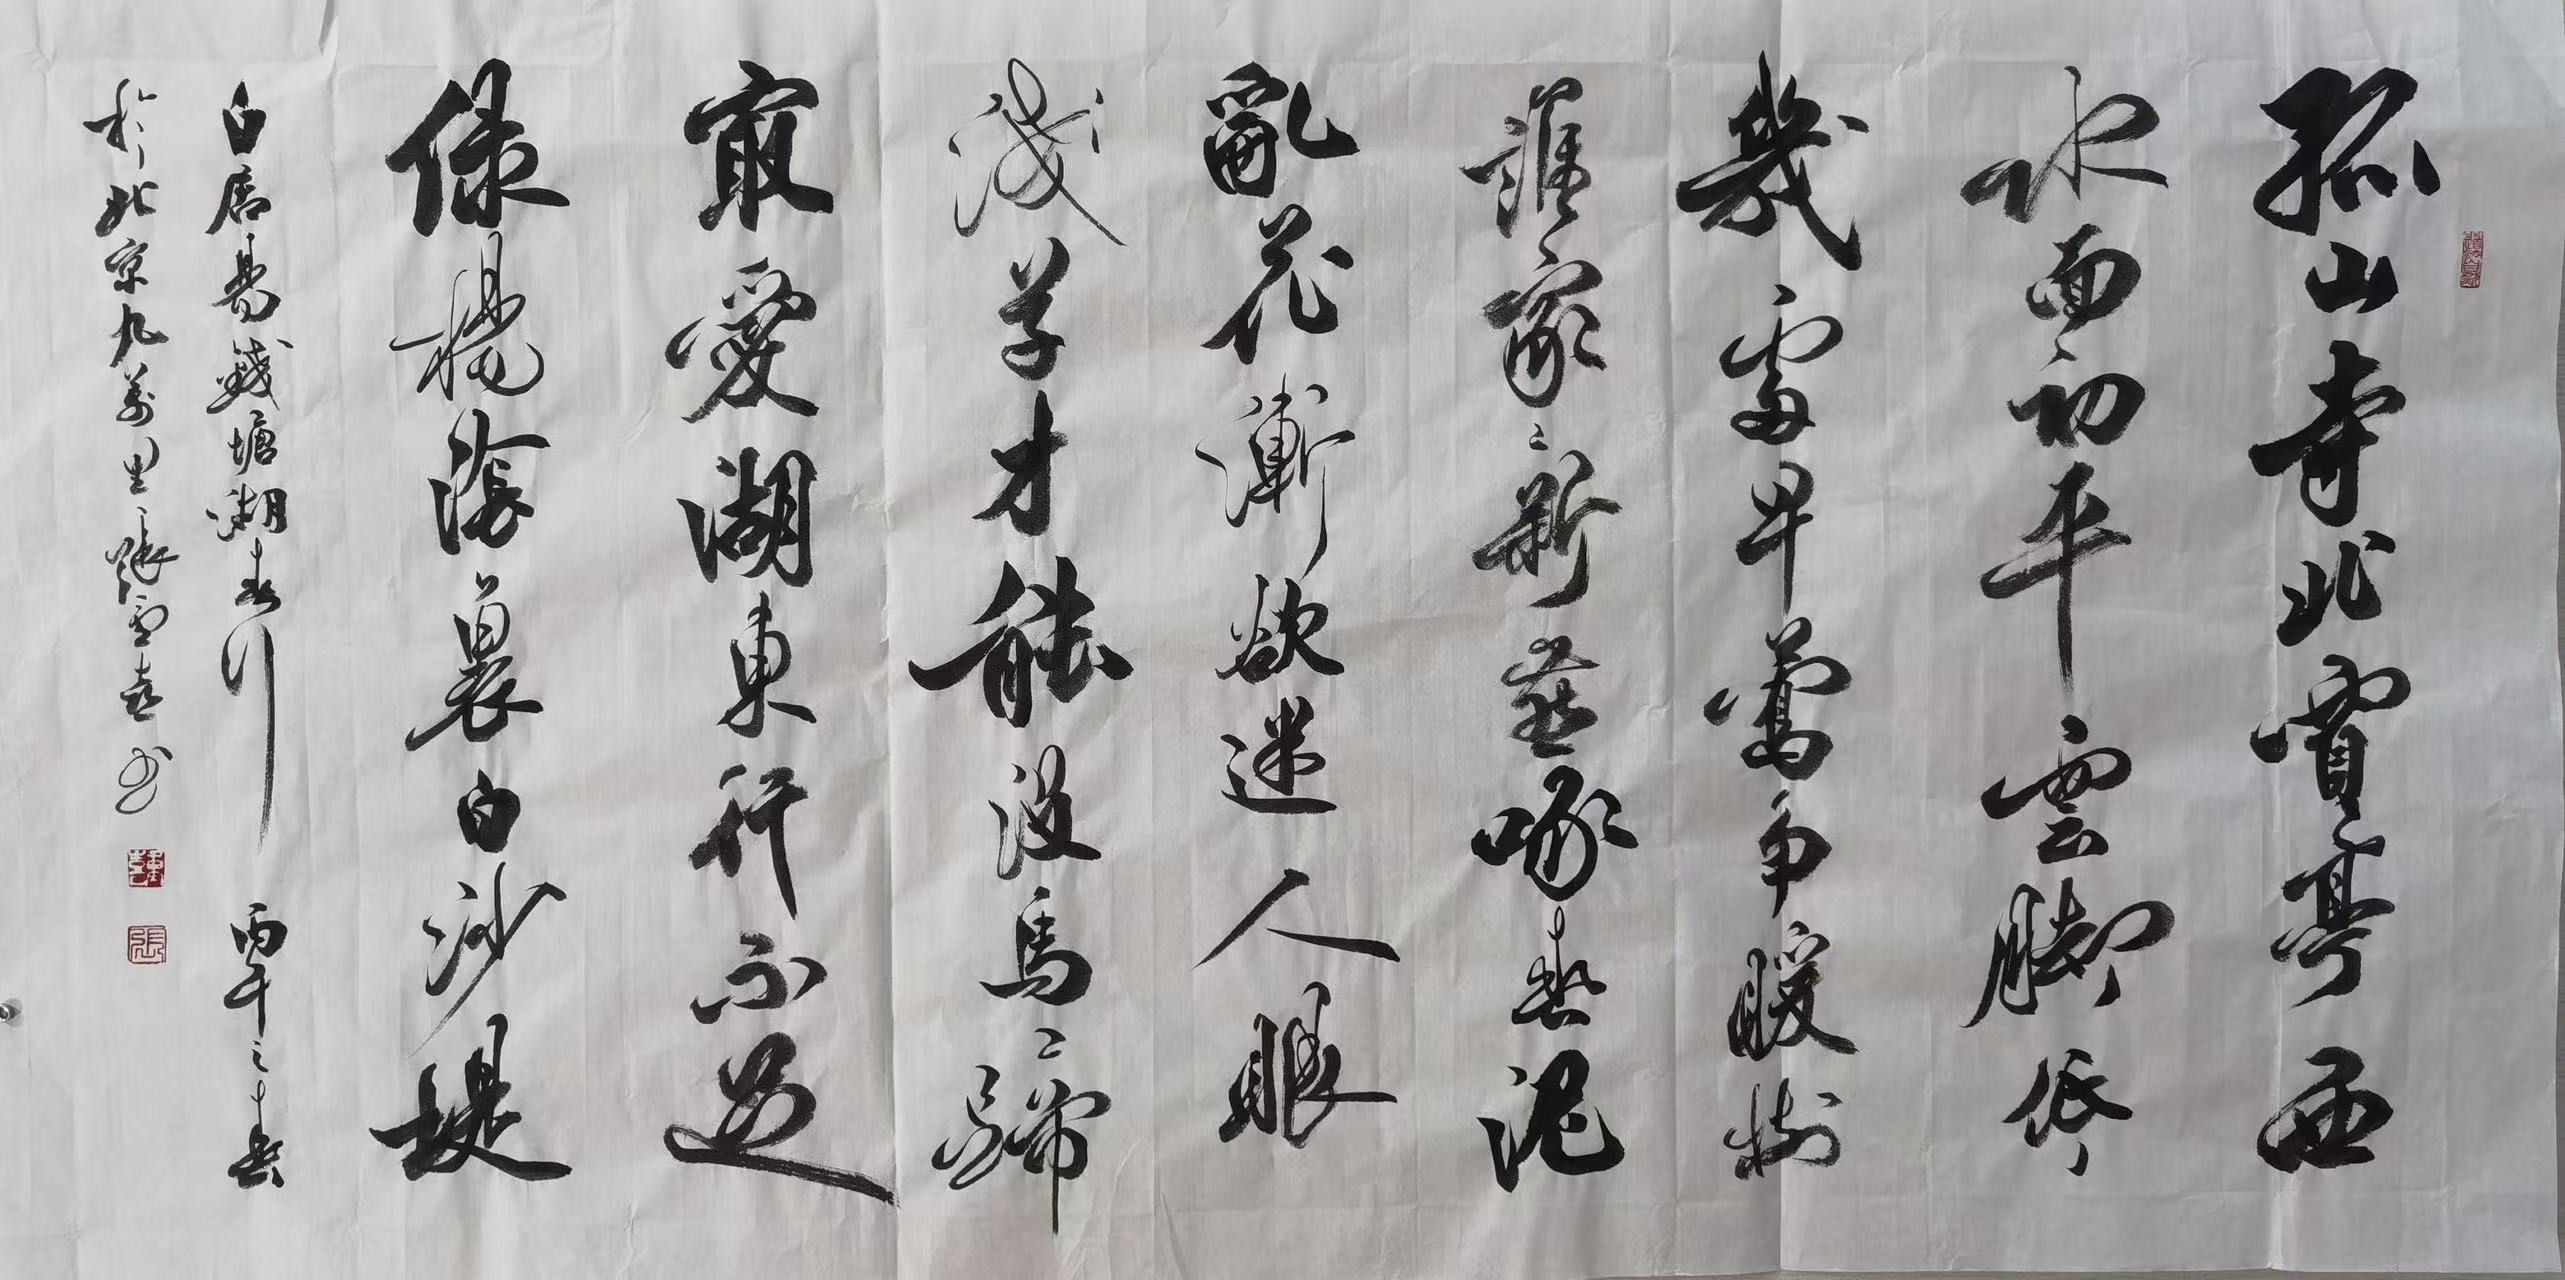 孤山寺北賈亭西
水面初平雲脚低
幾處早鶯争暖樹
誰家新燕啄春泥
亂花漸欲迷人眼
淺草才能没馬蹄
冣愛湖東行不足
緑楊陰裏白沙堤
白居易錢塘湖春行 丙午之春
於北京九萬里張重喜书
重喜
張